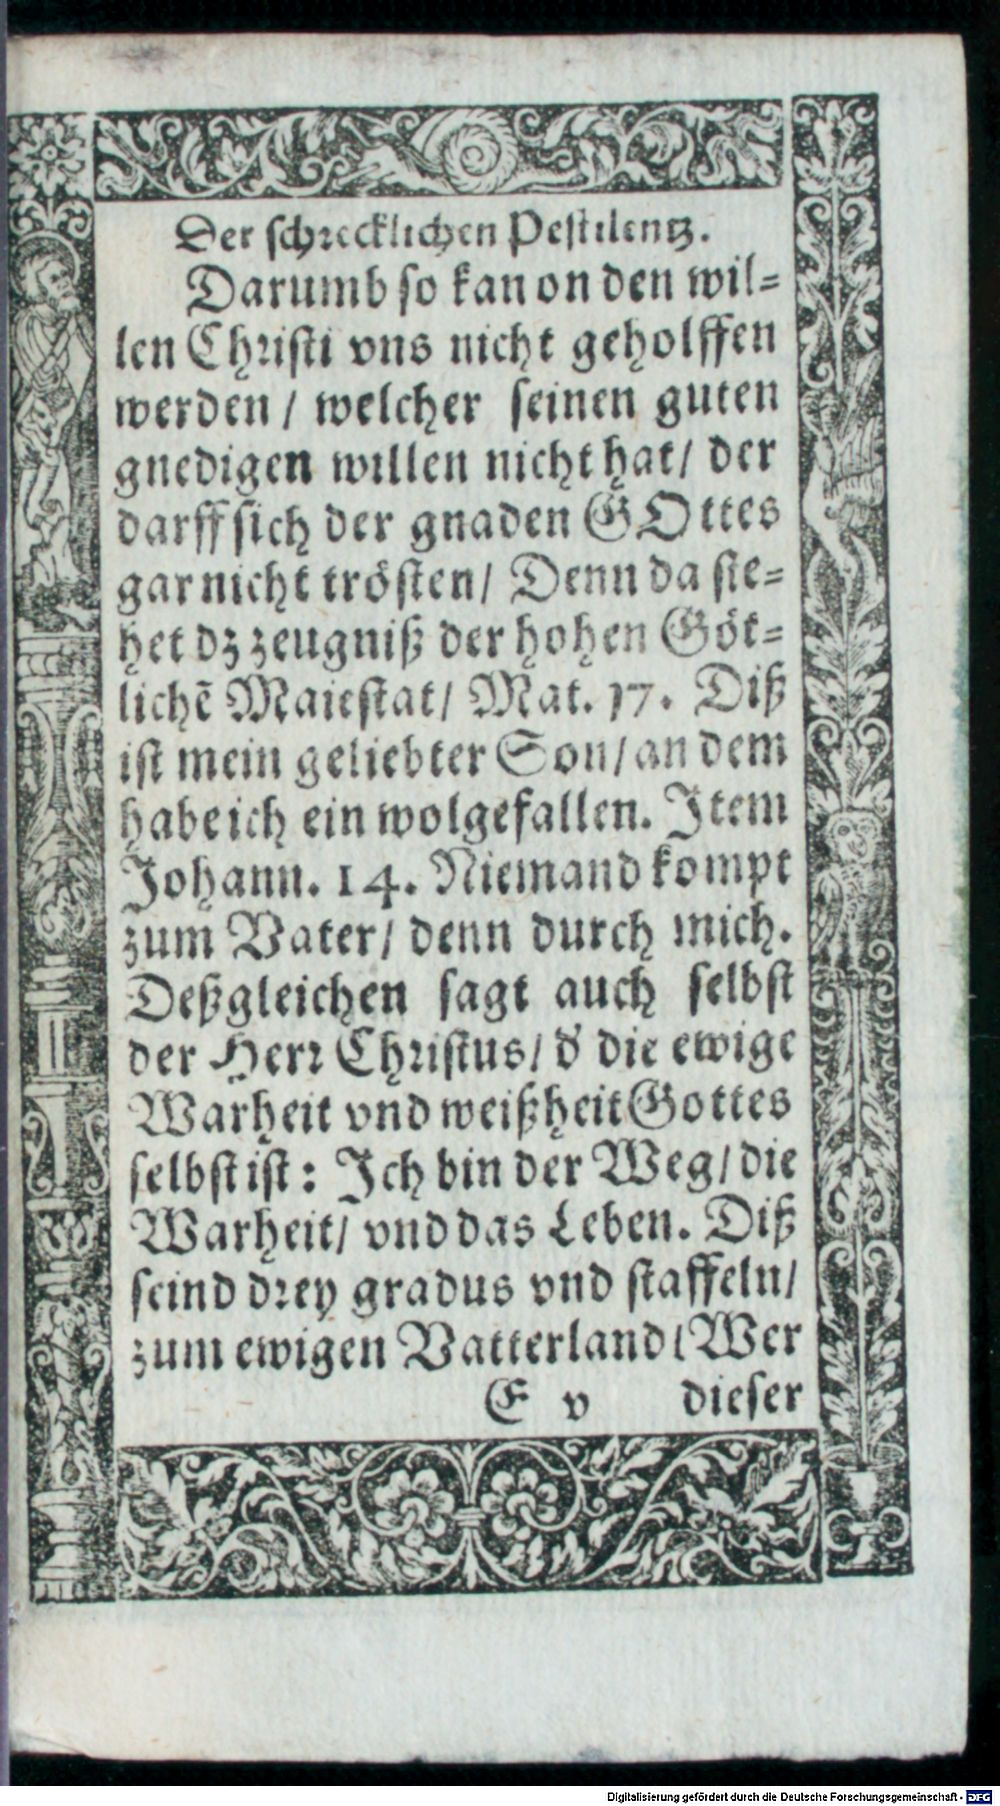 Der schrecklichen Pestilentz.
Darumb so kan on den wil-
len Christi vns nicht geholffen
werden / welcher seinen guten
gnedigen willen nicht hat / der
darff sich der gnaden GOttes
gar nicht trösten / Denn da ste-
het dz zeugniß der hohen Göt-
lichẽ Maiestat / Mat. 17. Diß
ist mein geliebter Son / an dem
habe ich ein wolgefallen. Item
Johann. 14. Niemand kompt
zum Vater / denn durch mich.
Deßgleichen sagt auch selbst
der Herr Christus / d' die ewige
Warheit vnd weißheit Gottes
selbst ist: Ich bin der Weg / die
Warheit / vnd das Leben. Diß
seind drey gradus vnd staffeln /
zum ewigen Vatterland / Wer
E v dieser
Digitalisierung gefördert durch die Deutsche Forschungsgemeinschaft - DFG